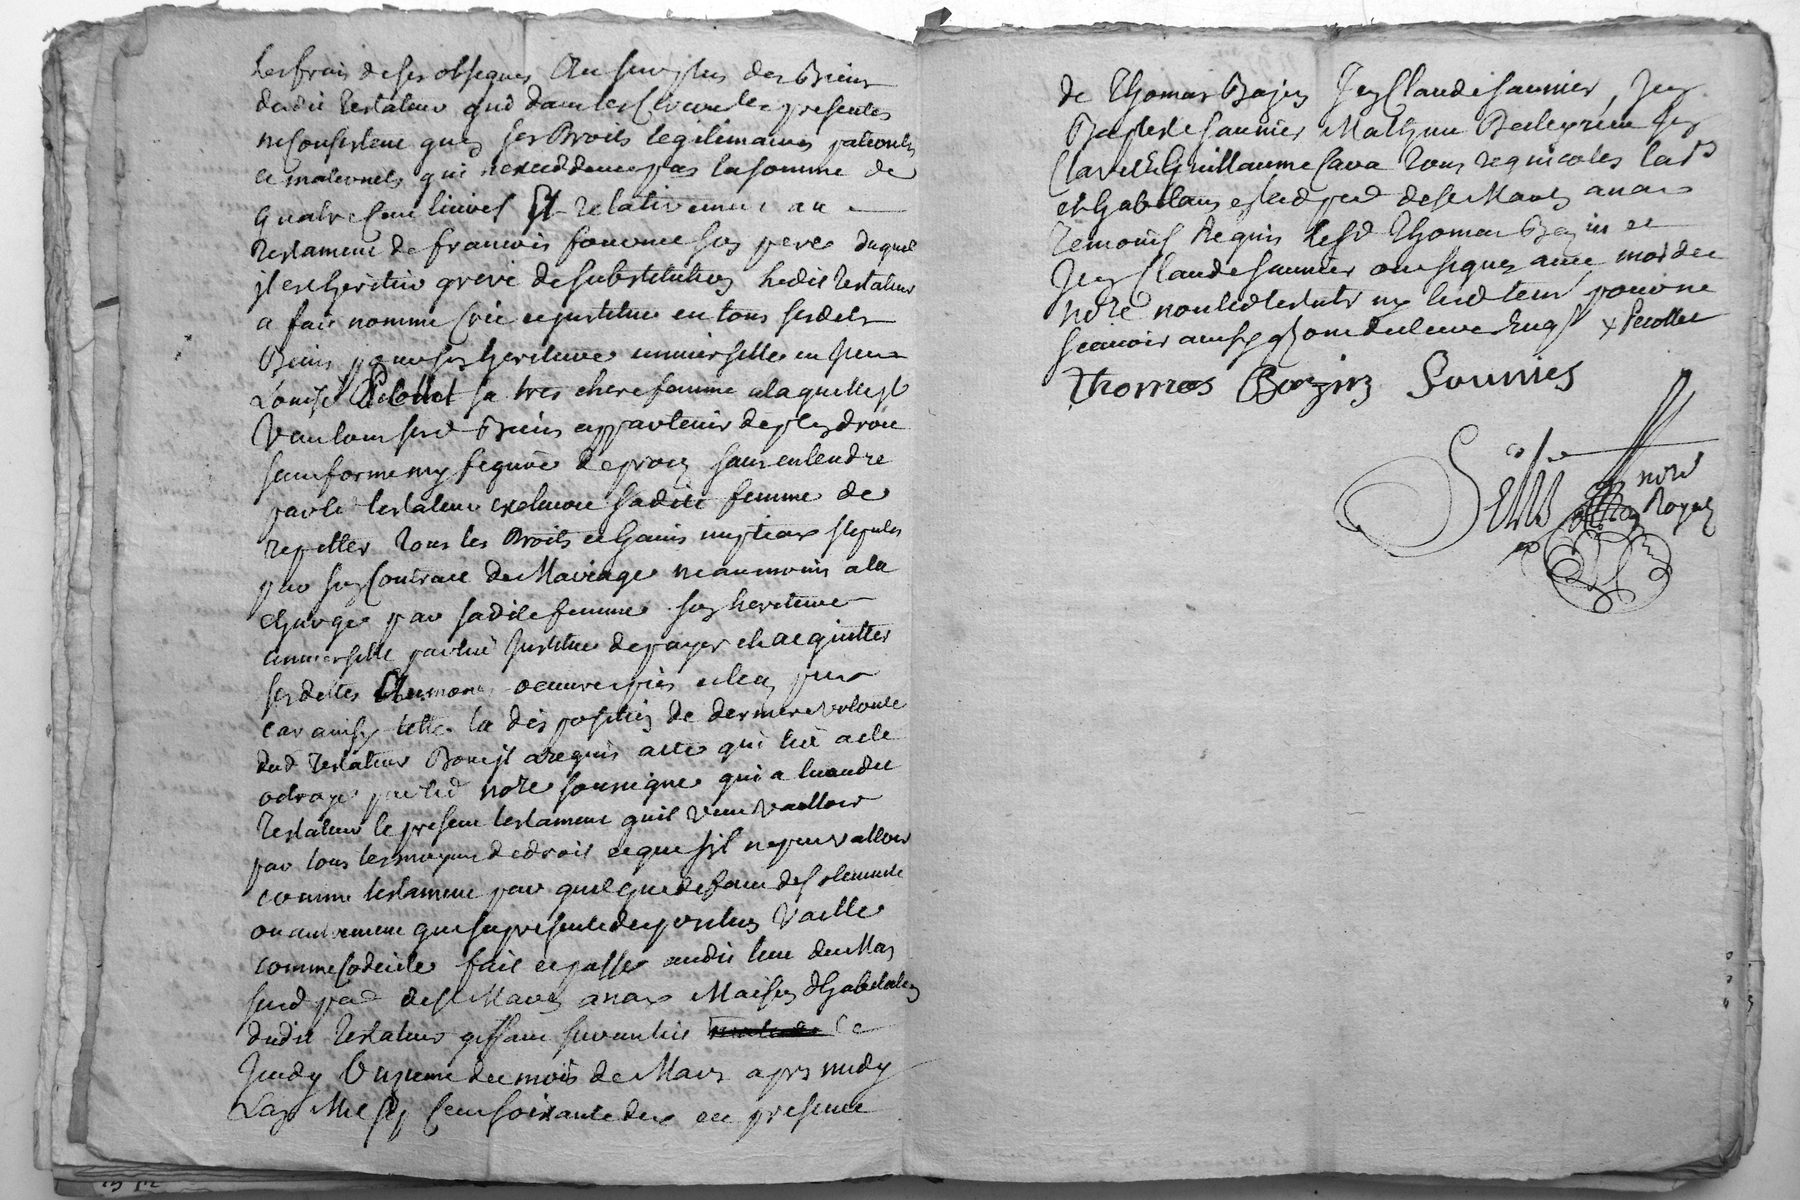 les frais de ses obseques Au surplus des Biens
dudit testateur qui dans les presentes
ne consistent ques ses Droits legitimaires paternels
et maternels qui nexceddent pas la somme de
quatre cent livres Et relativement au
testament de francois son pere duquel
il est heritier grevé de substitution ledit testateur
a fait nommé créé et institué en tous sesdits
Biens pour son heritiere universelle en
Louise Pecollet sa tres chere femme a laquelle il
veut tous sesd Biens appartenir de plein droit
sans forme ny figure de proces sans entendre
par le testateur exclure sadite femme de
repetter tous les Droits et Gains nuptiaux stipules
par son Contract de Mariage neanmoins a la
charge par sadite femme son heritiere
universelle par luy Instituée de payer et acquitter
ses dettes Aumones oeuvres pies et leg
car ainsy telle la disposition de derniere volonté
dud testateur Dont il a requis acte qui luy a eté
octroyé par led nore soussigné qui a lu audit
testateur le present testament quil veut valloir
par tous les moyens de droit et que sil ne peut valloir
comme testament par quelque defaut de solemnité
ou autrement que sa presente disposition vaille
comme codicile fait et passé audit lieu du Mas
susd par de st Mary anax Maison d'habitation
dudit testateur gissant sur un lit ce
Jeudy Unzieme du mois de Mars apres midy
Lan Mil sept cent soixante deux en presence
de Thomas Bazin Jean Claude saunier, Jean
Baptiste saunier Mathieu Jean
Clavel & Guillaume Cava tous regnicoles lad
et habitans esd par de st Mary anax
temoins Requis lesd Thomas Bazin et
Jean Claude saunier ont signez avec moidit
nore non led testatr ny lesd tem pour ne
scavoir ainsy quont declaré Enqs x Pecollet
Thomas Bazin Sounies
nore
Royal